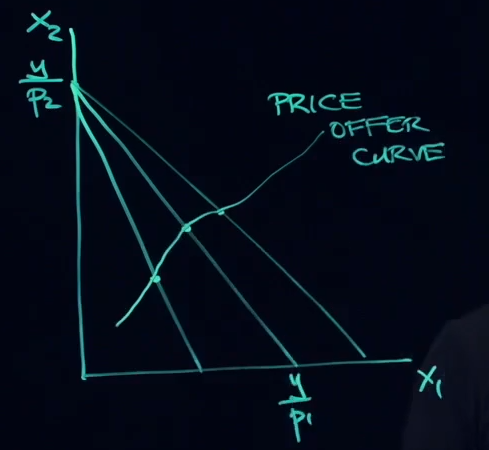 X2
y
P2
PRICE
OFFER
CURVE
X1
y
P1